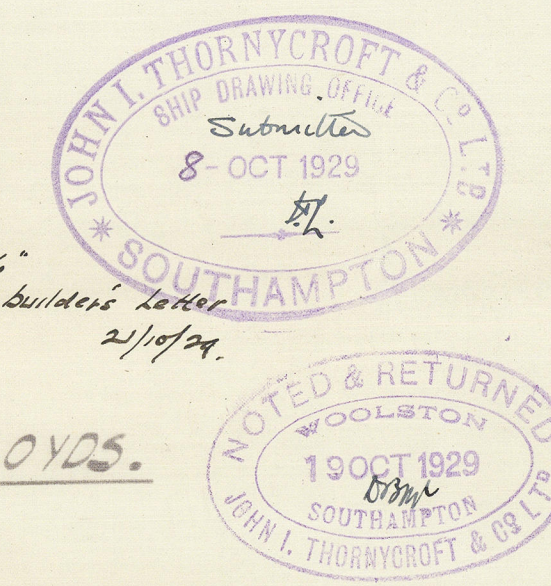 JOHN I. THORNYCROFT & Co. LTD
SHIP DRAWING OFFICE
Submitted
8 - OCT 1929
SOUTHAMPTON
builder's Letter
21/10/29.
OYDS.
NOTED & RETURNED
WOOLSTON
19 OCT 1929
SOUTHAMPTON
JOHN I. THORNYCROFT & Co. LTD